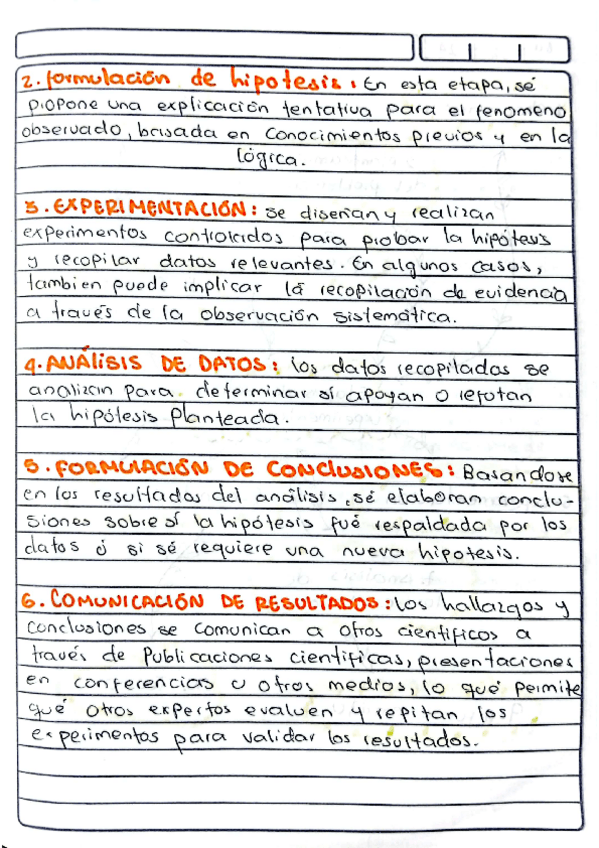 2. formulación de hipotesis: En esta etapa, sé
propone una explicación tentativa para el fenomeno
observado, basada en conocimientos previos y en la
lógica.
3. EXPERIMENTACIÓN: se diseñan y realizan
experimentos controlados para probar la hipótesis
y recopilar datos relevantes. En algunos casos,
tambien puede implicar la recopilación de evidencia
a través de la observación sistemática.
4. ANÁLISIS DE DATOS: los datos recopilados se
analizan para determinar sí apoyan o refutan
la hipótesis Planteada.
5. FORMULACIÓN DE CONCLUSIONES: Basandose
en los resultados del análisis, sé elaboran conclu-
siones sobre sí la hipótesis fué respaldada por los
datos ó si sé requiere una nueva hipotesis.
6. COMUNICACIÓN DE RESULTADOS: los hallazgos y
conclusiones se comunican a otros cientificos a
través de Publicaciones cientificas, presentaciones
en conferencias u otros medios, lo qué permite
qué otros expertos evaluen y repitan los
experimentos para validar los resultados.